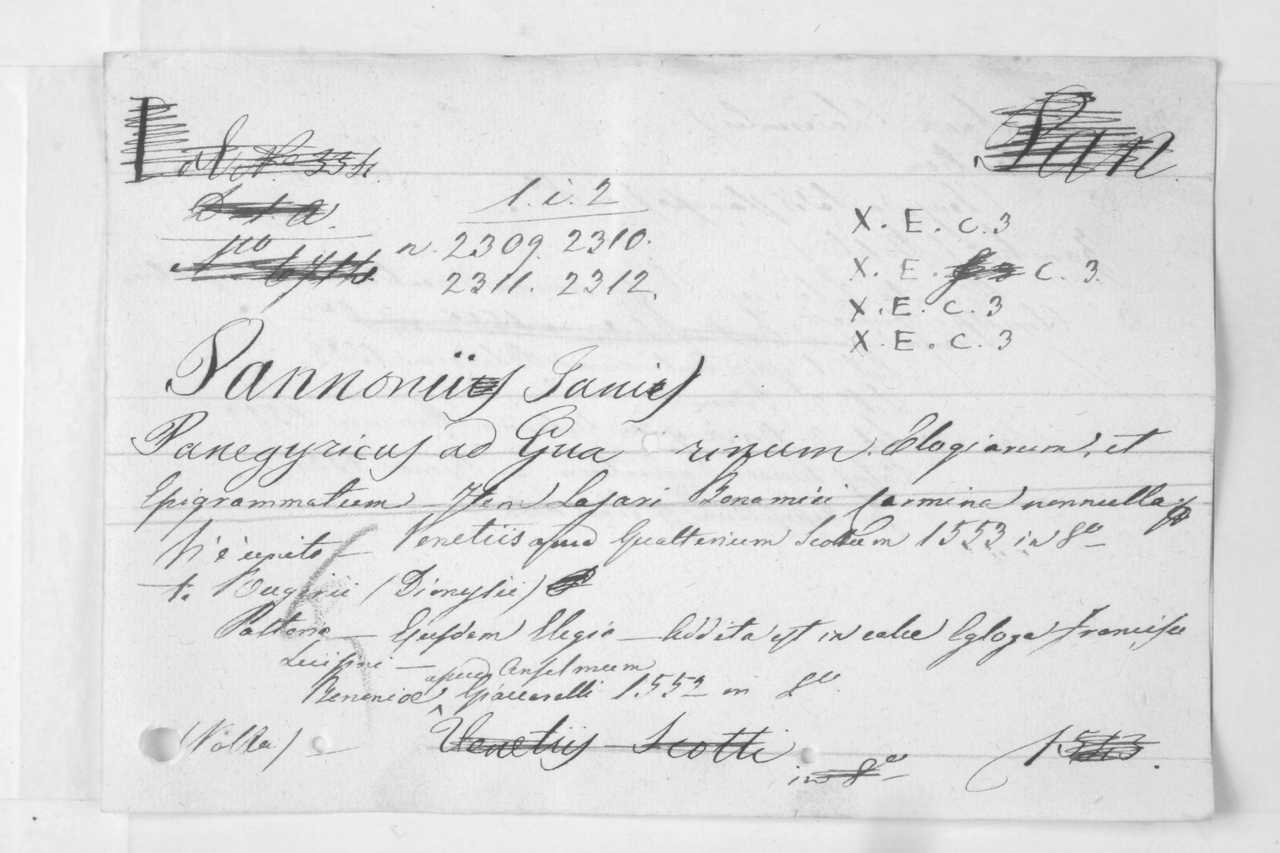 Pan
N.º 334.
D + a.
1. i. 2
Nº 6414
n. 2309. 2310.
2311. 2312.
X. E. c. 3
X. E. c. 3.
X. E. c. 3
X. E. c. 3
Pannonii Jani
Panegyricus ad Gua rinum. Elogiarum, et
Epigrammatum — Item Lazari Bonamici Carmina nonnulla
Vi è unito — Venetiis apud Gualterium Scotum 1553 in 8º
(Dionysii)
— Ejusdem Elegia — Addita est in calce Egloga Francisci
Luisini —
apud Anselmum
Bononiae Giaccarelli 1553 in 8º
(Nobba)
Venetiis Scotti
in 8º
1543.